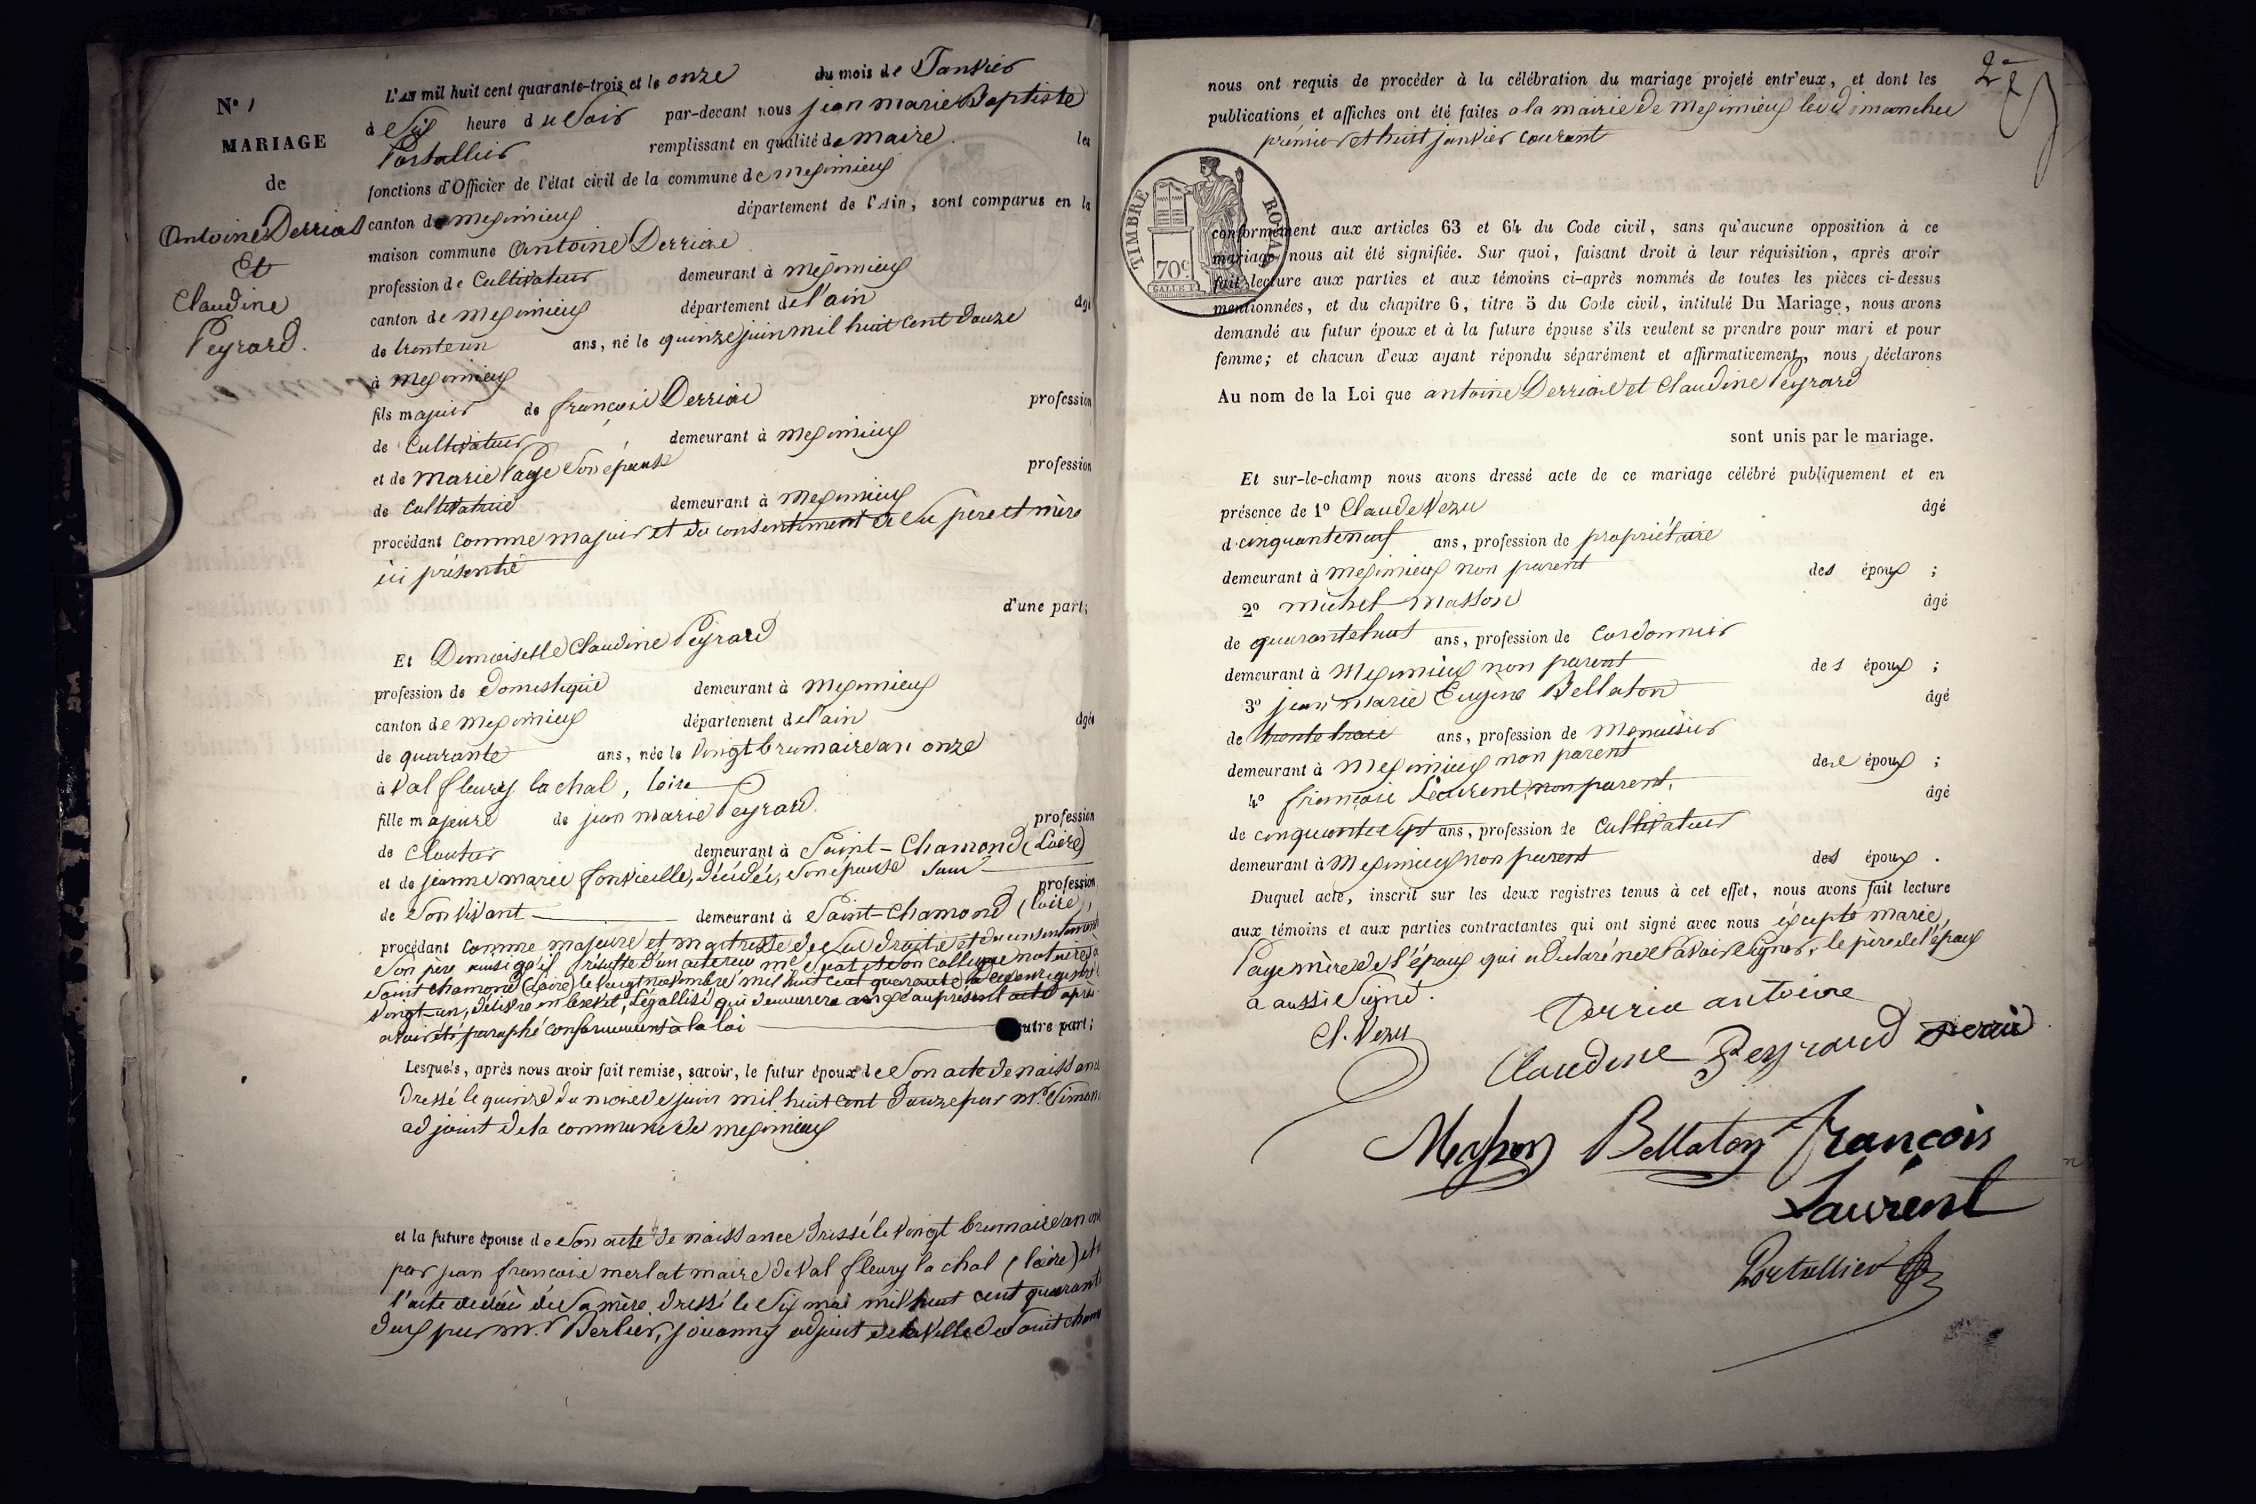 N° 1
MARIAGE
de
Antoine Derriat
Et
Claudine
Peyrard.
L'AN mil huit cent quarante-trois et le onze du mois de Janvier
à Six heure du Soir par-devant nous jean marie Baptiste
Portallier remplissant en qualité de maire les
fonctions d'Officier de l'état civil de la commune de meximieux
canton de meximieux département de l'Ain, sont comparus en la
maison commune Antoine Derriae
profession de Cultivateur demeurant à meximieux
canton de meximieux département de l'ain âgé
de trente un ans, né le quinze juin mil huit cent douze
à meximieux
fils majeur de françois Derriae profession
de Cultivateur demeurant à meximieux
et de marie Page Son épouse profession
de Cultivatrice demeurant à meximieux
procédant comme majeur et du consentement de Su père et mère
ici présentie
d'une part;
Et Demoiselle Claudine Peyrard
profession de domestique demeurant à meximieux
canton de meximieux département de l'ain âgée
de quarante ans, née le Vingt brumaire an onze
à Val fleury la chal, loire
fille majeure de jean marie Peyrard. profession
de Cloutier demeurant à Saint-Chamond (Loire)
et de jeanne marie fonvieille, décédée, Son épouse Sans profession
de Son Vivant demeurant à Saint-Chamond (Loire),
procédant comme majeure et maitresse de Ses droits et du consentement
Son père ainsi qu'il résulte d'un acte reçu me et Son collègue notaires à
Saint chamond (Loire) le Vingt novembre mil huit cent quarante deux enregistré
Vingt-un, délivré en brevet, Légallisé qui demeurera annexé au présent acte après
avoir été paraphé conformément à la loi d'autre part;
Lesquels, après nous avoir fait remise, savoir, le futur époux de Son acte de naissance
dressé le quinze du mois de juin mil huit cent douze par mr. Simon
adjoint de la commune de meximieux
et la future épouse de Son acte de naissance dressé le Vingt brumaire an onze
par jean françois merlat maire de Val fleury la chal (loire) et
l'acte décès de Sa mère dressé le Six mai mil huit cent quarante
deux par mr. Berlier, jouanny adjoint de la Ville de Saint cham
2e
nous ont requis de procéder à la célébration du mariage projeté entr'eux, et dont les
publications et affiches ont été faites à la mairie de meximieux les dimanches
premier et huit janvier courant
TIMBRE ROYAL
70c
conformément aux articles 63 et 64 du Code civil, sans qu'aucune opposition à ce
mariage nous ait été signifiée. Sur quoi, faisant droit à leur réquisition, après avoir
fait lecture aux parties et aux témoins ci-après nommés de toutes les pièces ci-dessus
mentionnées, et du chapitre 6, titre 5 du Code civil, intitulé Du Mariage, nous avons
demandé au futur époux et à la future épouse s'ils veulent se prendre pour mari et pour
femme; et chacun d'eux ayant répondu séparément et affirmativement, nous déclarons
Au nom de la Loi que antoine Derriae et Claudine Peyrard
sont unis par le mariage.
Et sur-le-champ nous avons dressé acte de ce mariage célébré publiquement et en
présence de 1° Claude Vezu âgé
de cinquante neuf ans, profession de propriétaire
demeurant à meximieux non parent des époux ;
2° michel masson âgé
de quarante huit ans, profession de Cordonnier
demeurant à Meximieux non parent des époux ;
3° jean marie Eugène Bellaton âgé
de trente trois ans, profession de Menuisier
demeurant à Meximieux non parent des époux ;
4° françois Laurent, non parent, âgé
de cinquante Sept ans, profession de Cultivateur
demeurant à Meximieux non parent des époux .
Duquel acte, inscrit sur les deux registres tenus à cet effet, nous avons fait lecture
aux témoins et aux parties contractantes qui ont signé avec nous excepté marie,
Page mère de l'époux qui a déclaré ne Savoir Signer, le père de l'époux
a aussi Signé.
Cl. Vezu Derriae antoine
Claudine Peyraud
Masson Bellaton françois
Laurent
Portallier